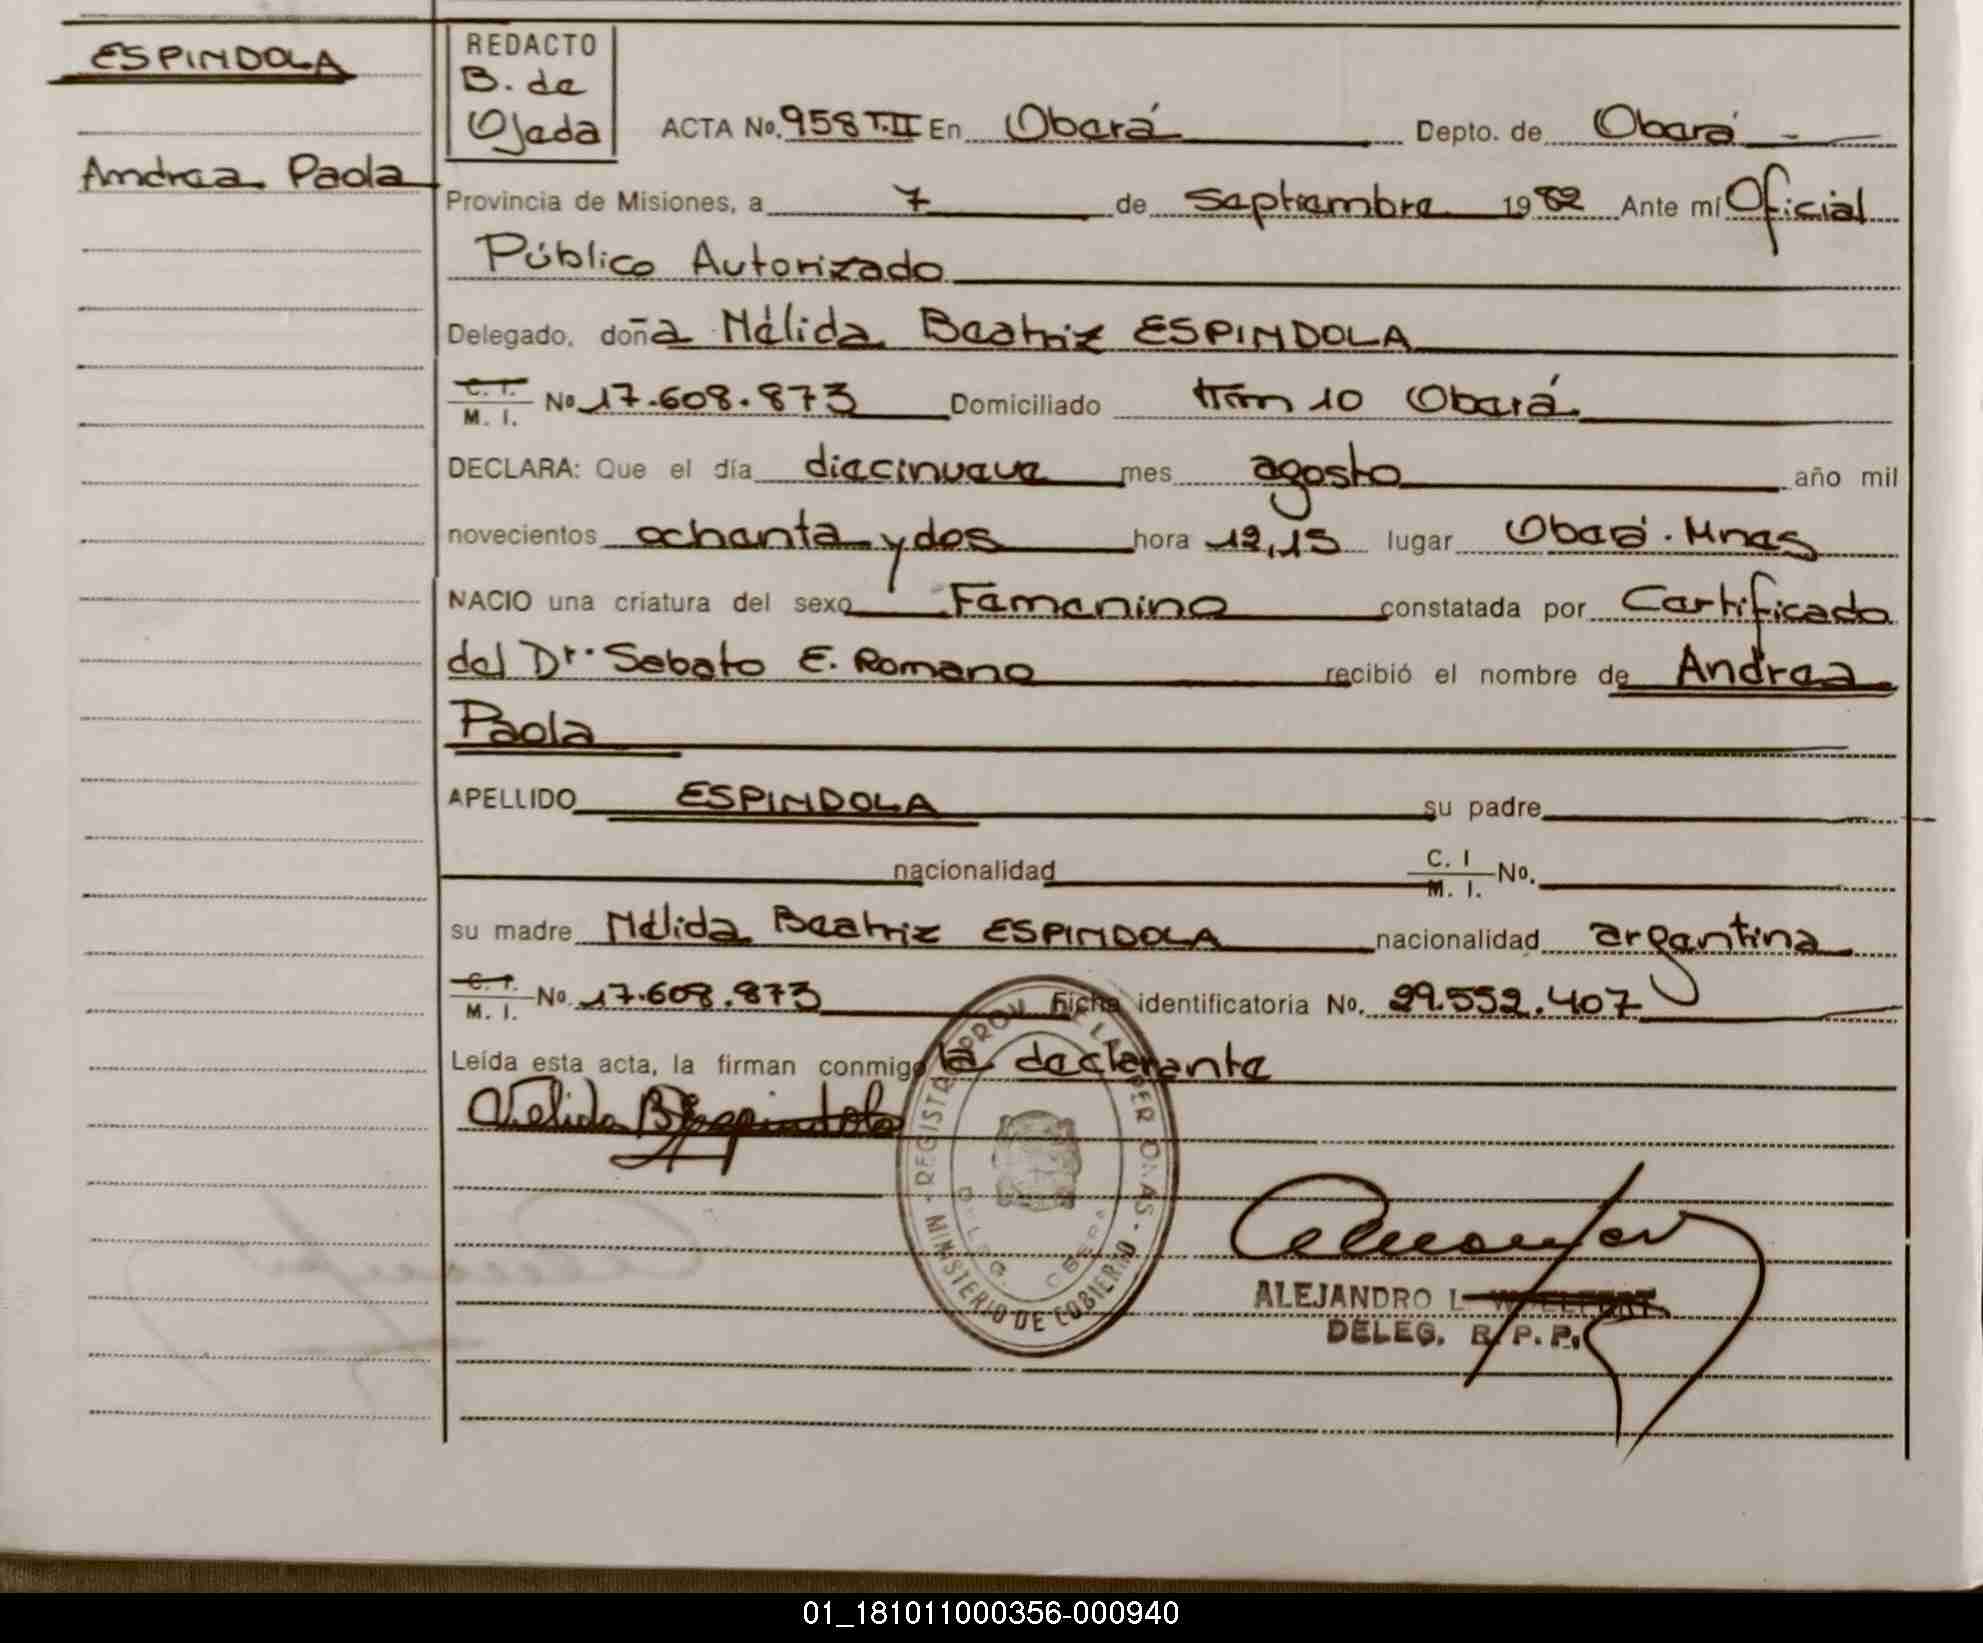 ESPINDOLA
Andrea Paola
REDACTO
B. de
Ojeda
ACTA No. 958 T.II En Oberá Depto. de Oberá
Provincia de Misiones, a 7 de septiembre 1982 Ante mí Oficial
Público Autorizado
Delegado, doña Nélida Beatriz ESPINDOLA
C. I. / M. I. No 17.608.873 Domiciliado Km 10 Oberá
DECLARA: Que el día diecinueve mes agosto año mil
novecientos ochenta y dos hora 12,15 lugar Oberá. Mnes
NACIO una criatura del sexo Femenino constatada por Certificado
del Dr. Sebato E. Romano recibió el nombre de Andrea
Paola
APELLIDO ESPINDOLA su padre
nacionalidad C. I / M. I. No.
su madre Nélida Beatriz ESPINDOLA nacionalidad argentina
C. I. / M. I. No. 17.608.873 Ficha identificatoria No. 29.552.407
Leída esta acta, la firman conmigo la declarante
Nelida B Espindola
REGISTRO PROV. DE LAS PERSONAS - MINISTERIO DE GOBIERNO
DELEG. OBERA
ALEJANDRO L.
DELEG. R. P. P.
01_181011000356-000940